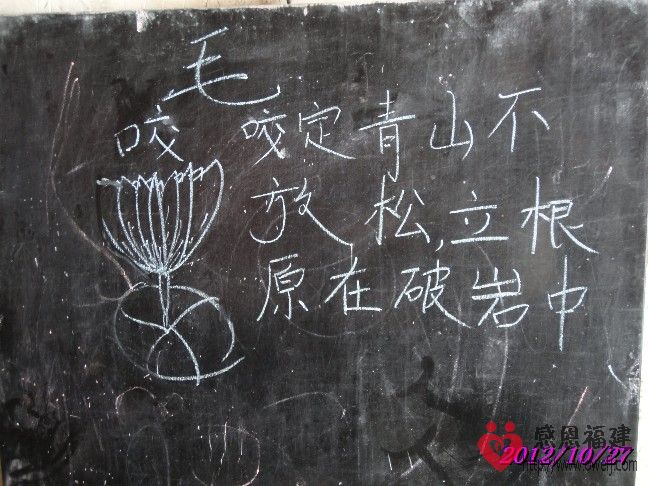 毛
咬 咬定青山不
放松,立根
原在破岩中
感恩福建
2012/10/27